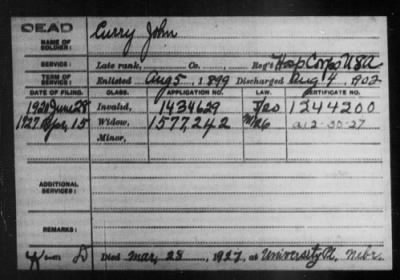 DEAD
NAME OF SOLDIER: Curry John
SERVICE: Late rank, Co., Reg't Hosp Corps USA
TERM OF SERVICE: Enlisted Aug 5, 1899 Discharged Aug 4, 1902
DATE OF FILING. CLASS. APPLICATION NO. LAW. CERTIFICATE NO.
1920 June 28 Invalid, 1434629 J/20 1244200
1927 Apr. 15 Widow, 1577,242 M/26 a12-30-27
Minor,
ADDITIONAL SERVICES:
REMARKS:
Died Mar, 28, 1927, at University Pl, Nebr.